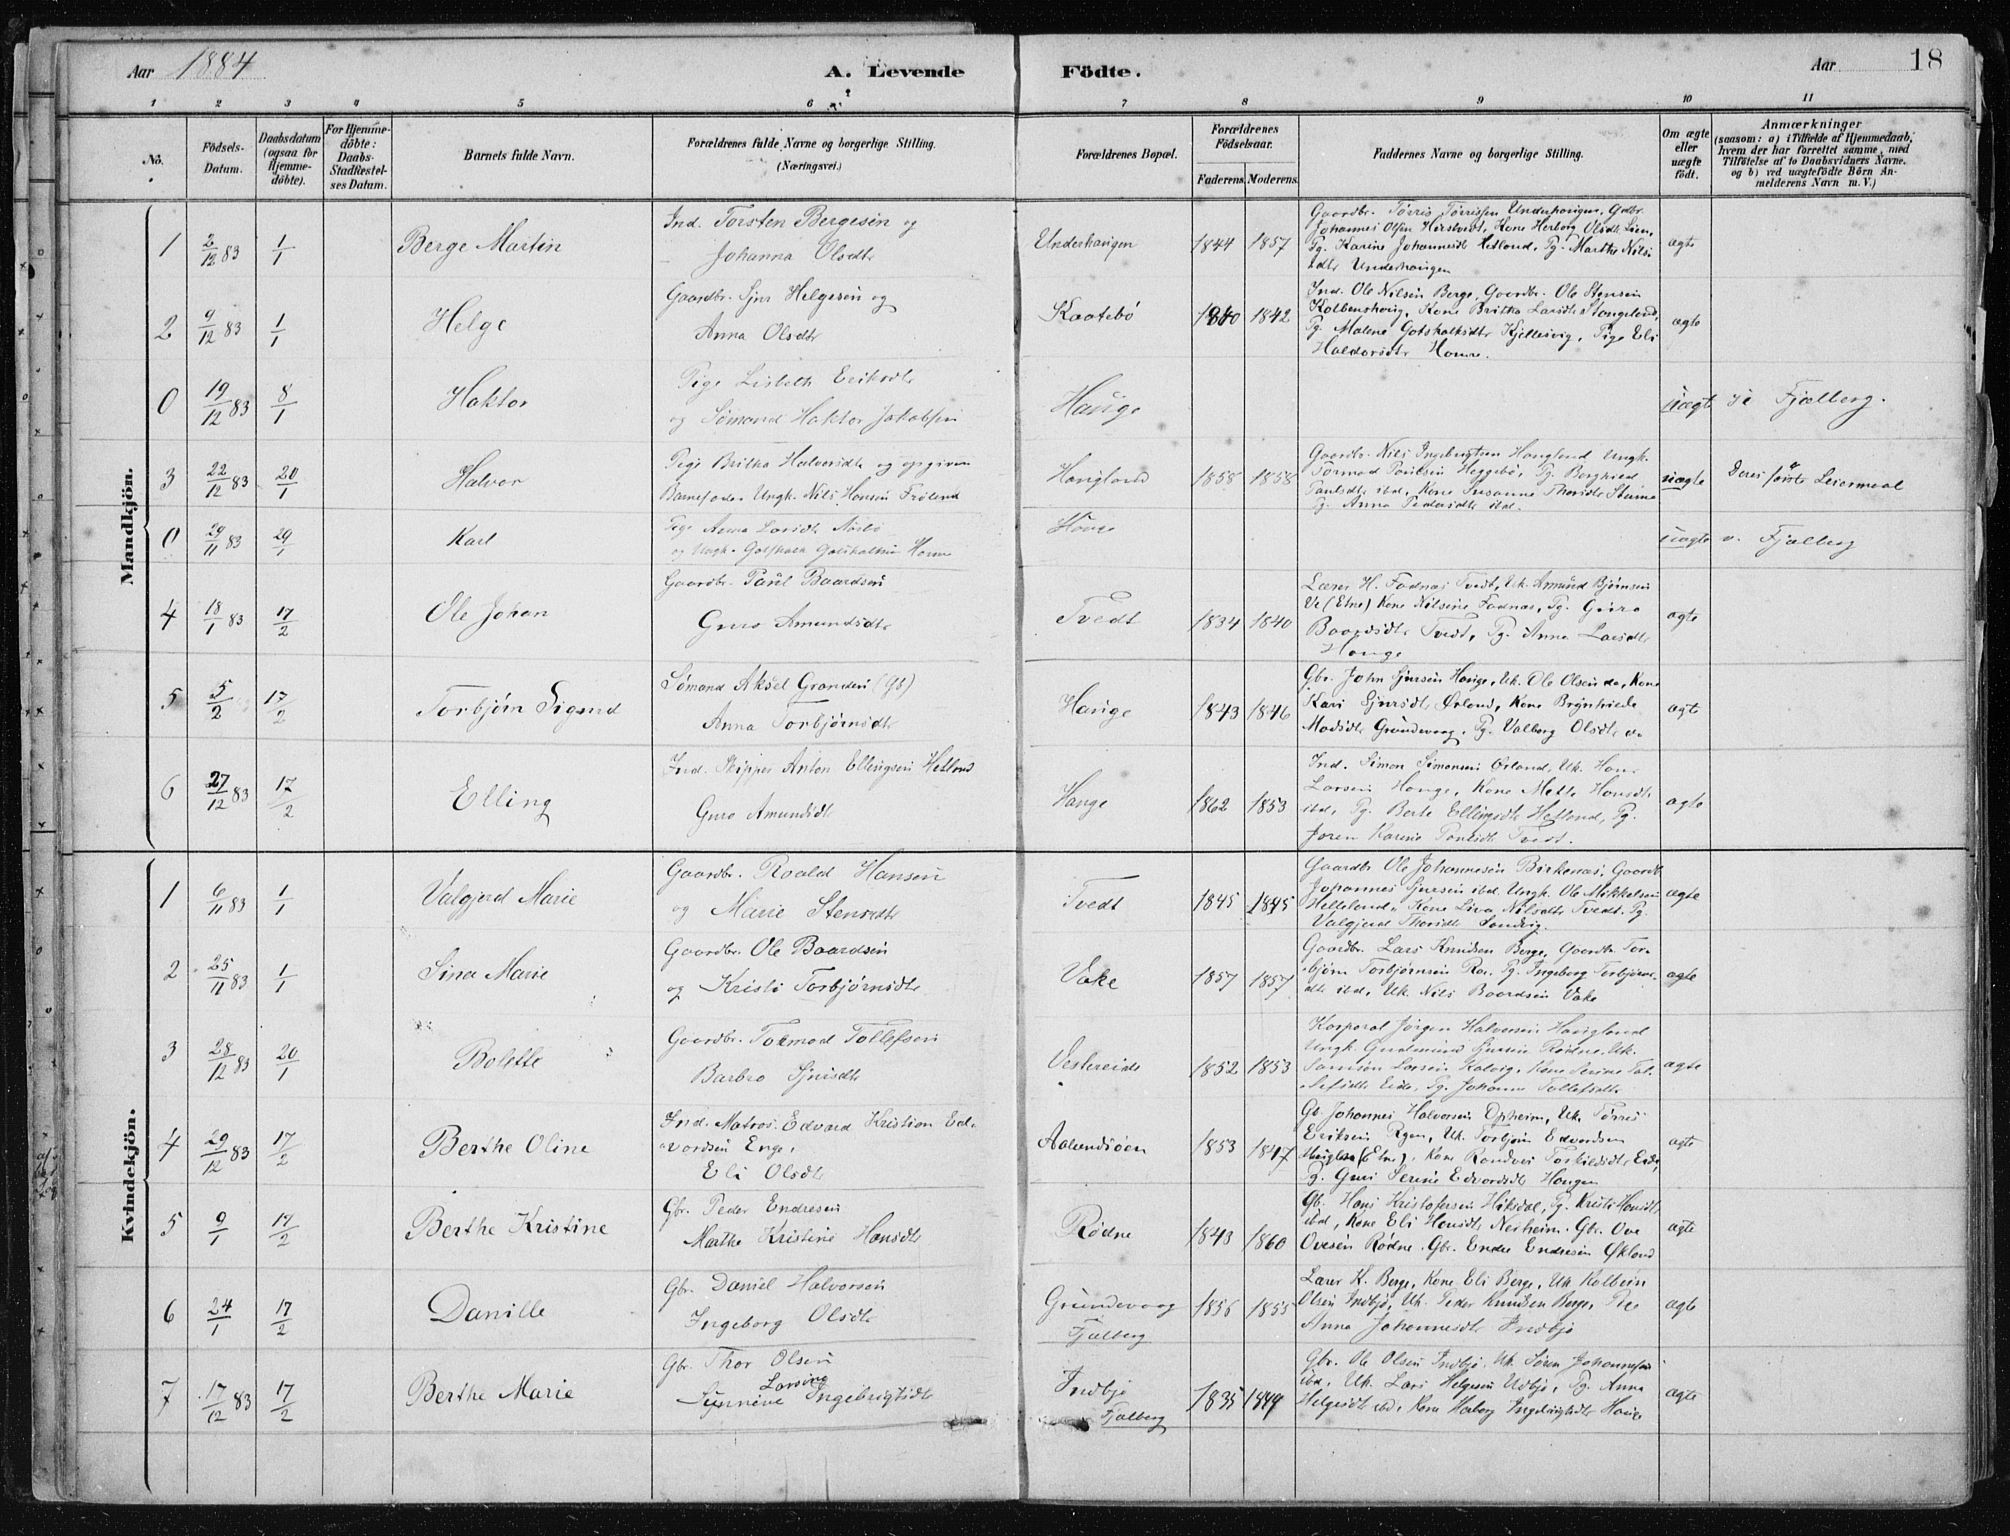 Aar 1884
A. Levende Födte.
Aar 18
1 2 3 4 5 6 7 8 9 10 11
No.
Födsels-Datum.
Daabsdatum (ogsaa for Hjemme-döbte).
For Hjemme-döbte: Daabs-Stadfestel-ses Datum.
Barnets fulde Navn.
Forældrenes fulde Navne og borgerlige Stilling. (Næringsvei.)
Forældrenes Bopæl.
Forældrenes Födselsaar.
Faderens. Moderens.
Faddernes Navne og borgerlige Stilling.
Om ægte eller uægte födt.
Anmærkninger
(saasom: a) i Tilfælde af Hjemmedaab, hvem der har forrettet samme, med Tilföielse af to Daabsvidners Navne. og b) ved uægtefödte Börn An-melderens Navn m. V.)
Mandkjön.
1 2/12 83 1/1 Berge Martin
Ind. Torsten Bergesen og
Johanna Olsdtr
Underhaugen 1844 1857
Gaardbr. Tørris Tørrissen Underhaugen, Gdbr.
Johannes Olsen Hirstvedt, Kone Herborg Olsdtr Lien,
Pg. Karine Johannesdtr Hetland, Pg. Marthe Nils-
dtr Underhaugen
ægte
2 9/12 83 1/1 Helge
Gaardbr. Sjur Helgesen og
Anna Olsdtr
Kaatebø 1840 1842
Ind. Ole Nilsen Berge, Gaardbr. Ole Stensen
Kolbenshavig, Kone Britha Larsdtr Stangeland,
Pg. Malene Gotskalksdtr Kjellesvig, Pige Eli
Haldorsdtr Houge.
ægte
0 19/12 83 8/1 Haktor
Pige Lisbeth Eriksdtr
og Sømand Haktor Jakobsen
Hauge
uægt
i Fjælberg.
3 22/12 83 20/1 Halvor
Pige Britha Halvorsdtr og opgiven
Barnefader Ungk. Nils Hansen Frøland
Haugland 1858 1858
Gaardbr. Nils Ingebrigtsen Haugland, Ungk.
Tormod Paulsen Heggebø, Pg. Borghild
Paulsdtr ibd, Kone Susanne Thorsdtr Steine
Pg. Anna Pedersdtr ibd.
uægte
Deres første Leiermaal
0 29/11 83 29/1 Karl
Pige Anna Larsdtr
og Ungk. Gotskalk Gotskalksen
Houge
uægte
v. Fjælberg
4 18/1 83 17/2 Ole Johan
Gaardbr. Paul Baardsen
Guro Amundsdtr
Tvedt 1834 1840
Lærer H. Fadnæs Tvedt, Uk. Amund Bjørnsen
Ve (Etne) Kone Nilsine Fadnæs, Pg. Guro
Baardsdtr Tvedt, Pg. Anna Larsdtr
Houge
ægte
5 5/2 17/2 Torbjørn Sigurd
Sømand Aksel Grønden (gs)
Anna Torbjørnsdtr
Hauge 1843 1846
Gbr. John Sjursen Hauge, Uk. Ole Olsen do, Kone
Kari Sjursdtr Ørland, Kone Brynhilde
Madsdtr Grundevaag, Pg. Valborg Olsdtr do
ægte
6 27/12 83 17/2 Elling
Ind. Skipper Anton Ellingsen Hetland
Guro Amundsdtr
Hauge 1862 1853
Ind. Simon Simonsen Ørland, Uk. Hans
Larsen Houge, Kone Mette Hansdtr
ibd, Pg. Berte Ellingsdtr Hetland, Pg.
Joren Karine Paulsdtr Tvedt.
ægte
Kvindekjön.
1 6/11 83 1/1 Valgjerd Marie
Gaardbr. Roald Hansen
og Marie Stensdtr
Tvedt 1845 1845
Gaardbr Ole Johannesen Birkenæs, Gaardb.
Johannes Sjursen ibd. Ungk. Ole Mikkelsen
Helleland, Kone Liva Nilsdtr Tvedt, Pg.
Valgjerd Thorsdtr Sandvig.
ægte
2 25/11 83 1/1 Sina Marie
Gaardbr. Ole Baardsen
og Kristi Torbjørnsdtr
Vake 1857 1857
Gaardbr. Lars Knudsen Berge, Gaardb. Tor-
bjørn Torbjørnsen Ræ, Pg. Ingeborg Torbjørns-
dtr ibd, Uk. Nils Baardsen Vake
ægte
3 28/12 83 20/1 Bolette
Gaardbr. Tormod Tollefsen
Barbro Sjursdtr
Vestreide 1852 1853
Korporal Jørgen Halvorsen Haugland
Ungk. Gudmund Sjursen Rødne, Uk.
Samson Larsen Kalvig, Kone Serine Tol-
lefsdtr Eide, Pg. Johanne Tollefsdtr
ægte
4 29/12 83 17/2 Berthe Oline
Ind. Matros. Edvard Kristian Ed-
vardsen Enge,
Eli Olsdtr
Aalundsöen 1853 1847
Gb Johannes Halvorsen Opheim, Uk. Tørres
Eriksen Rgen, Uk. Torbjørn Edvardsen
(Etne), Kone Randvei Torkildsdtr Eide,
Pg. Guri Serine Edvardsdtr Haugen
ægte
5 9/1 17/2 Berthe Kristine
Gbr. Peder Endresen
Marthe Kristine Hansdtr
Rødne 1843 1860
Gb. Hans Kristofersen Hiksdal, Pg. Kristi Hansdtr
ibd, Kone Eli Hansdtr Nerheim, Gbr. Ove
Ovesen Rødne, Gbr. Endre Endresen Økland
ægte
6 24/1 17/2 Danille
Gbr. Daniel Halvorsen
Ingeborg Olsdtr
Grundevaag
Fjælberg
1856 1855
Lærer K. Berge, Kone Eli Berge, Uk Kolbein
Olsen Indbjo, Uk. Peder Knudsen Berge, Pige
Anna Johannesdtr Indbjo
ægte
7 17/12 83 17/2 Berthe Marie
Gbr. Thor Olsen
Larsine
Sunneve Ingebrigtsdtr
Indbjo
Fjælberg
1835 1849
Gbr. Ole Olsen Indbjo, Uk. Søren Johannesen
ibd, Uk. Lars Helgesen Udbjo, Pg. Anna
Helgesdtr ibd, Kone Herborg Ingebrigtsdtr Houge
ægte